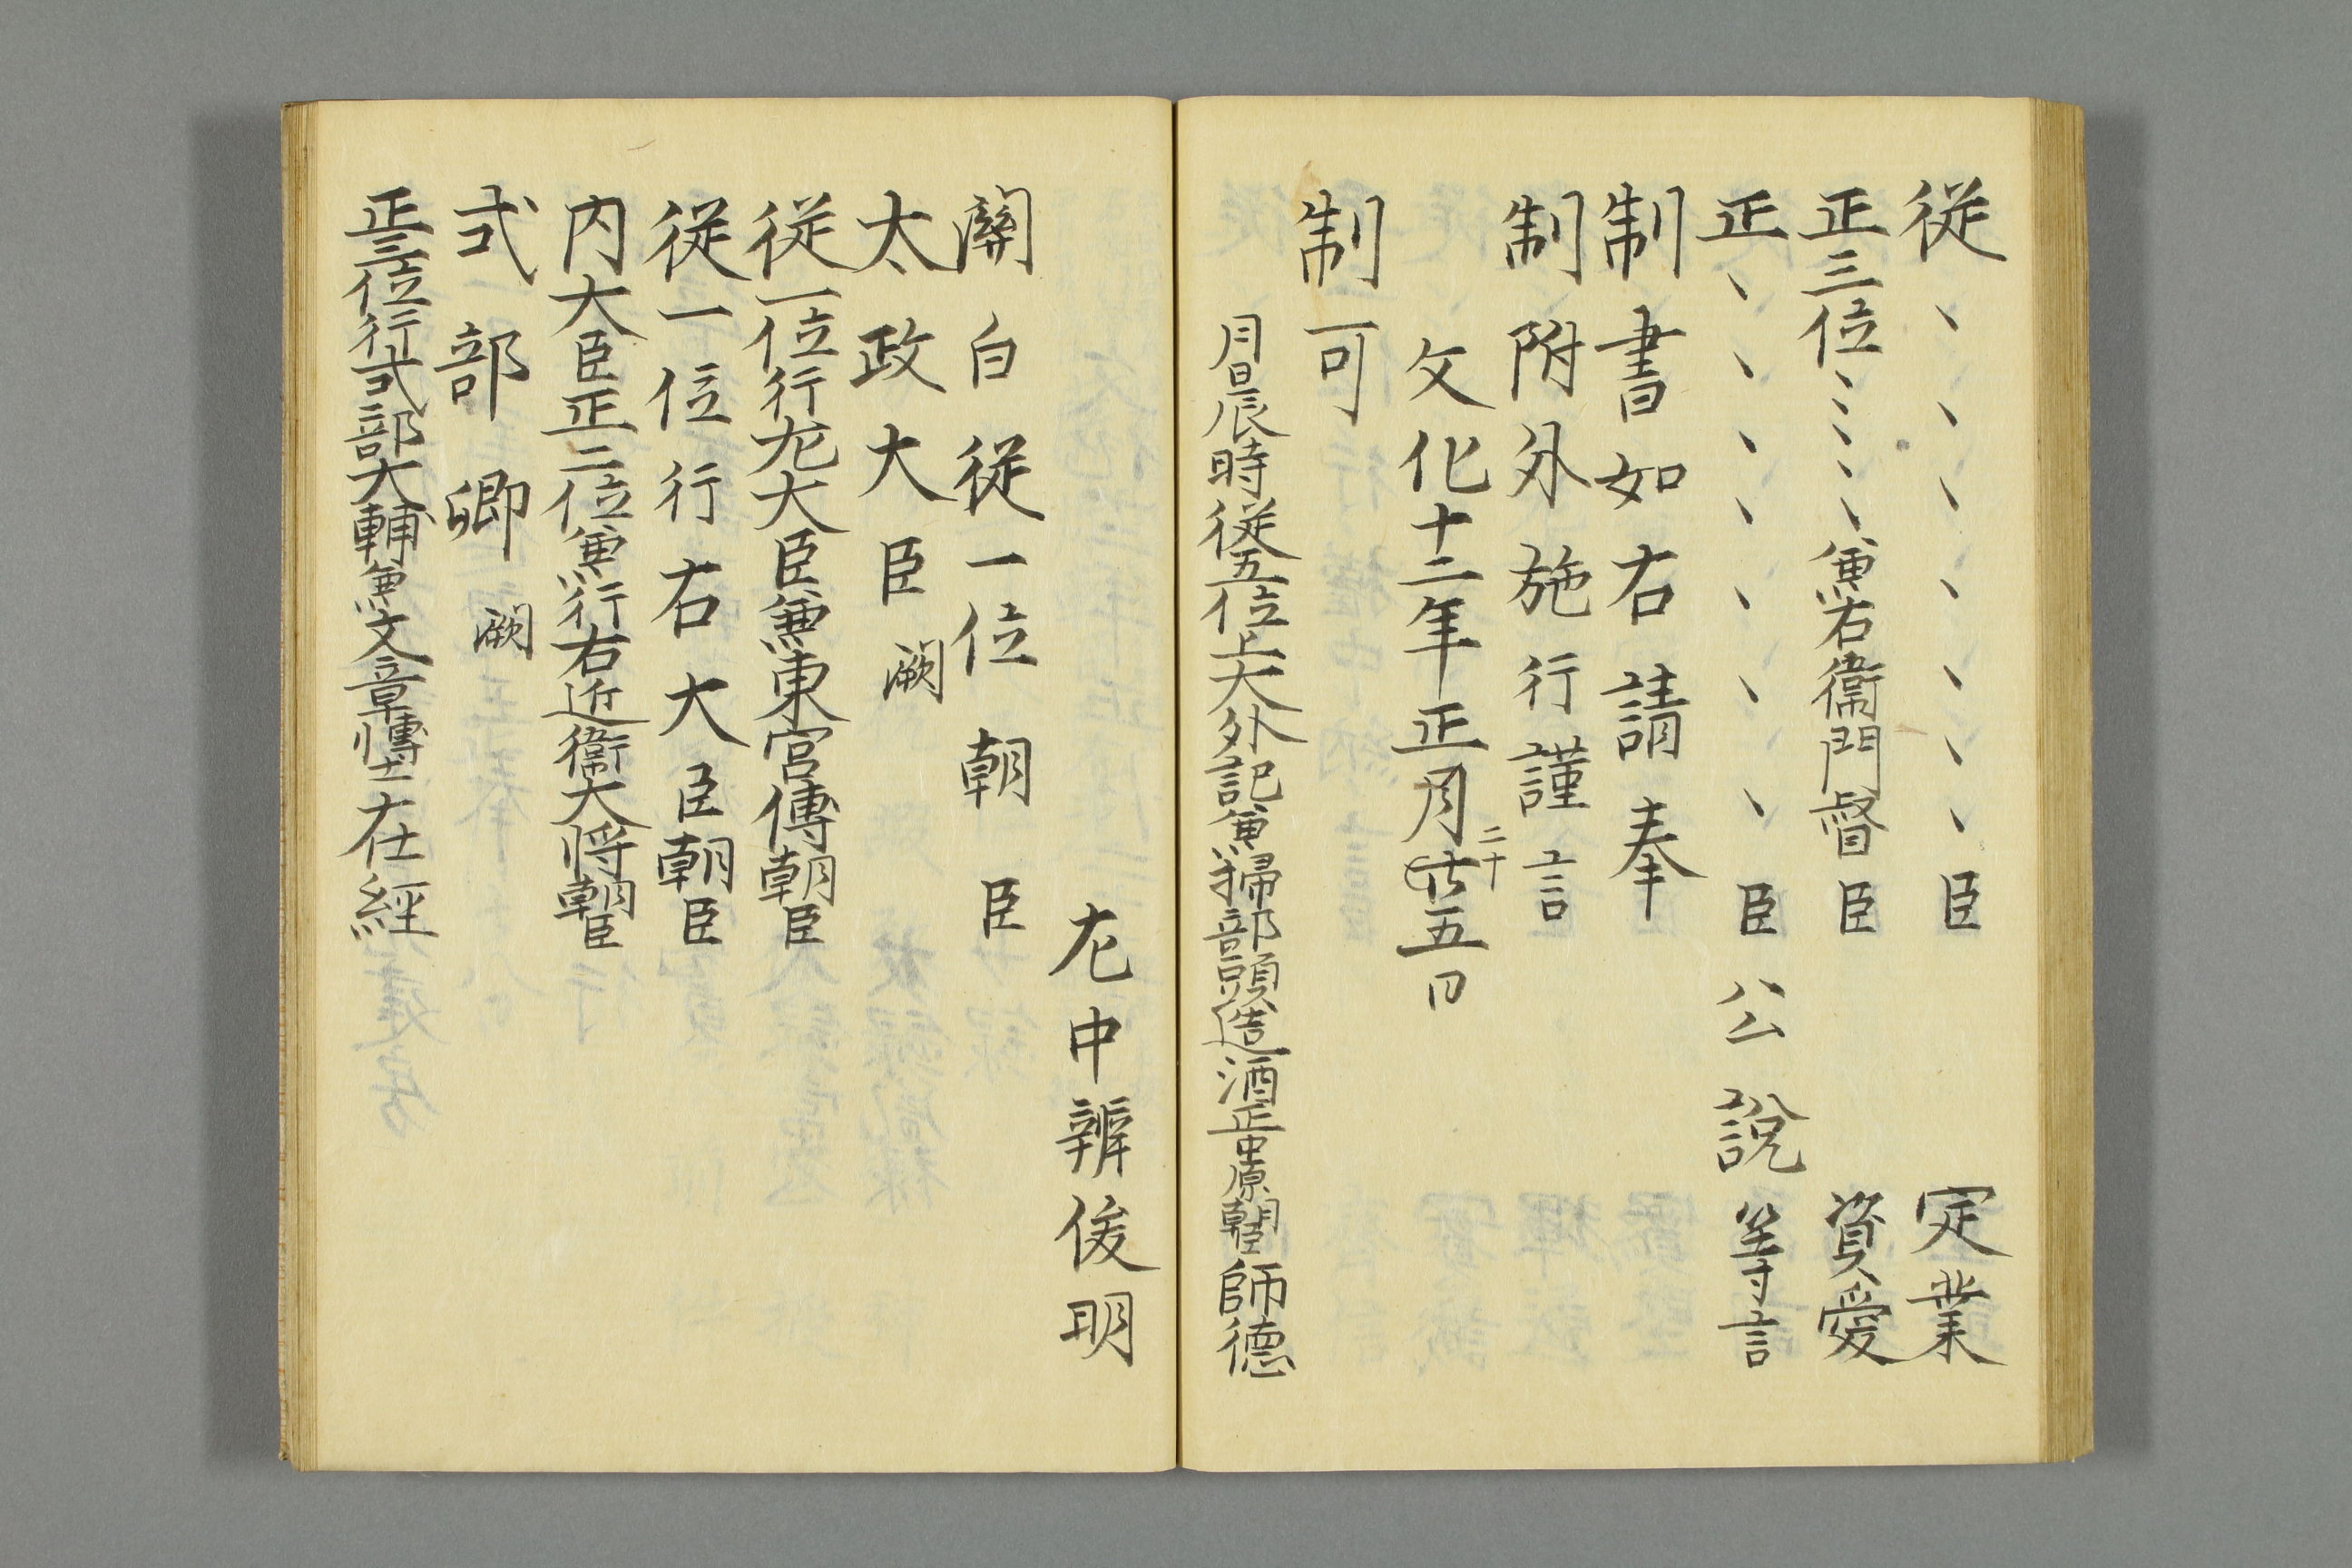 従、、、、、、、臣　定業
正三位、、、、兼右衛門督臣　資愛
正、、、、、、、臣公説等言
制書如右請奉
制附外施行謹言
文化十二年正月廿五日
二十
制可
月日辰時従五位上大外記兼掃部頭造酒正中原朝臣師徳
左中辨俊明
関白従一位朝臣
太政大臣闕
従一位行左大臣兼東宮傅朝臣
従一位行右大臣朝臣
内大臣正二位兼行右近衛大将朝臣
式部卿闕
正三位行式部大輔兼文章博士在経